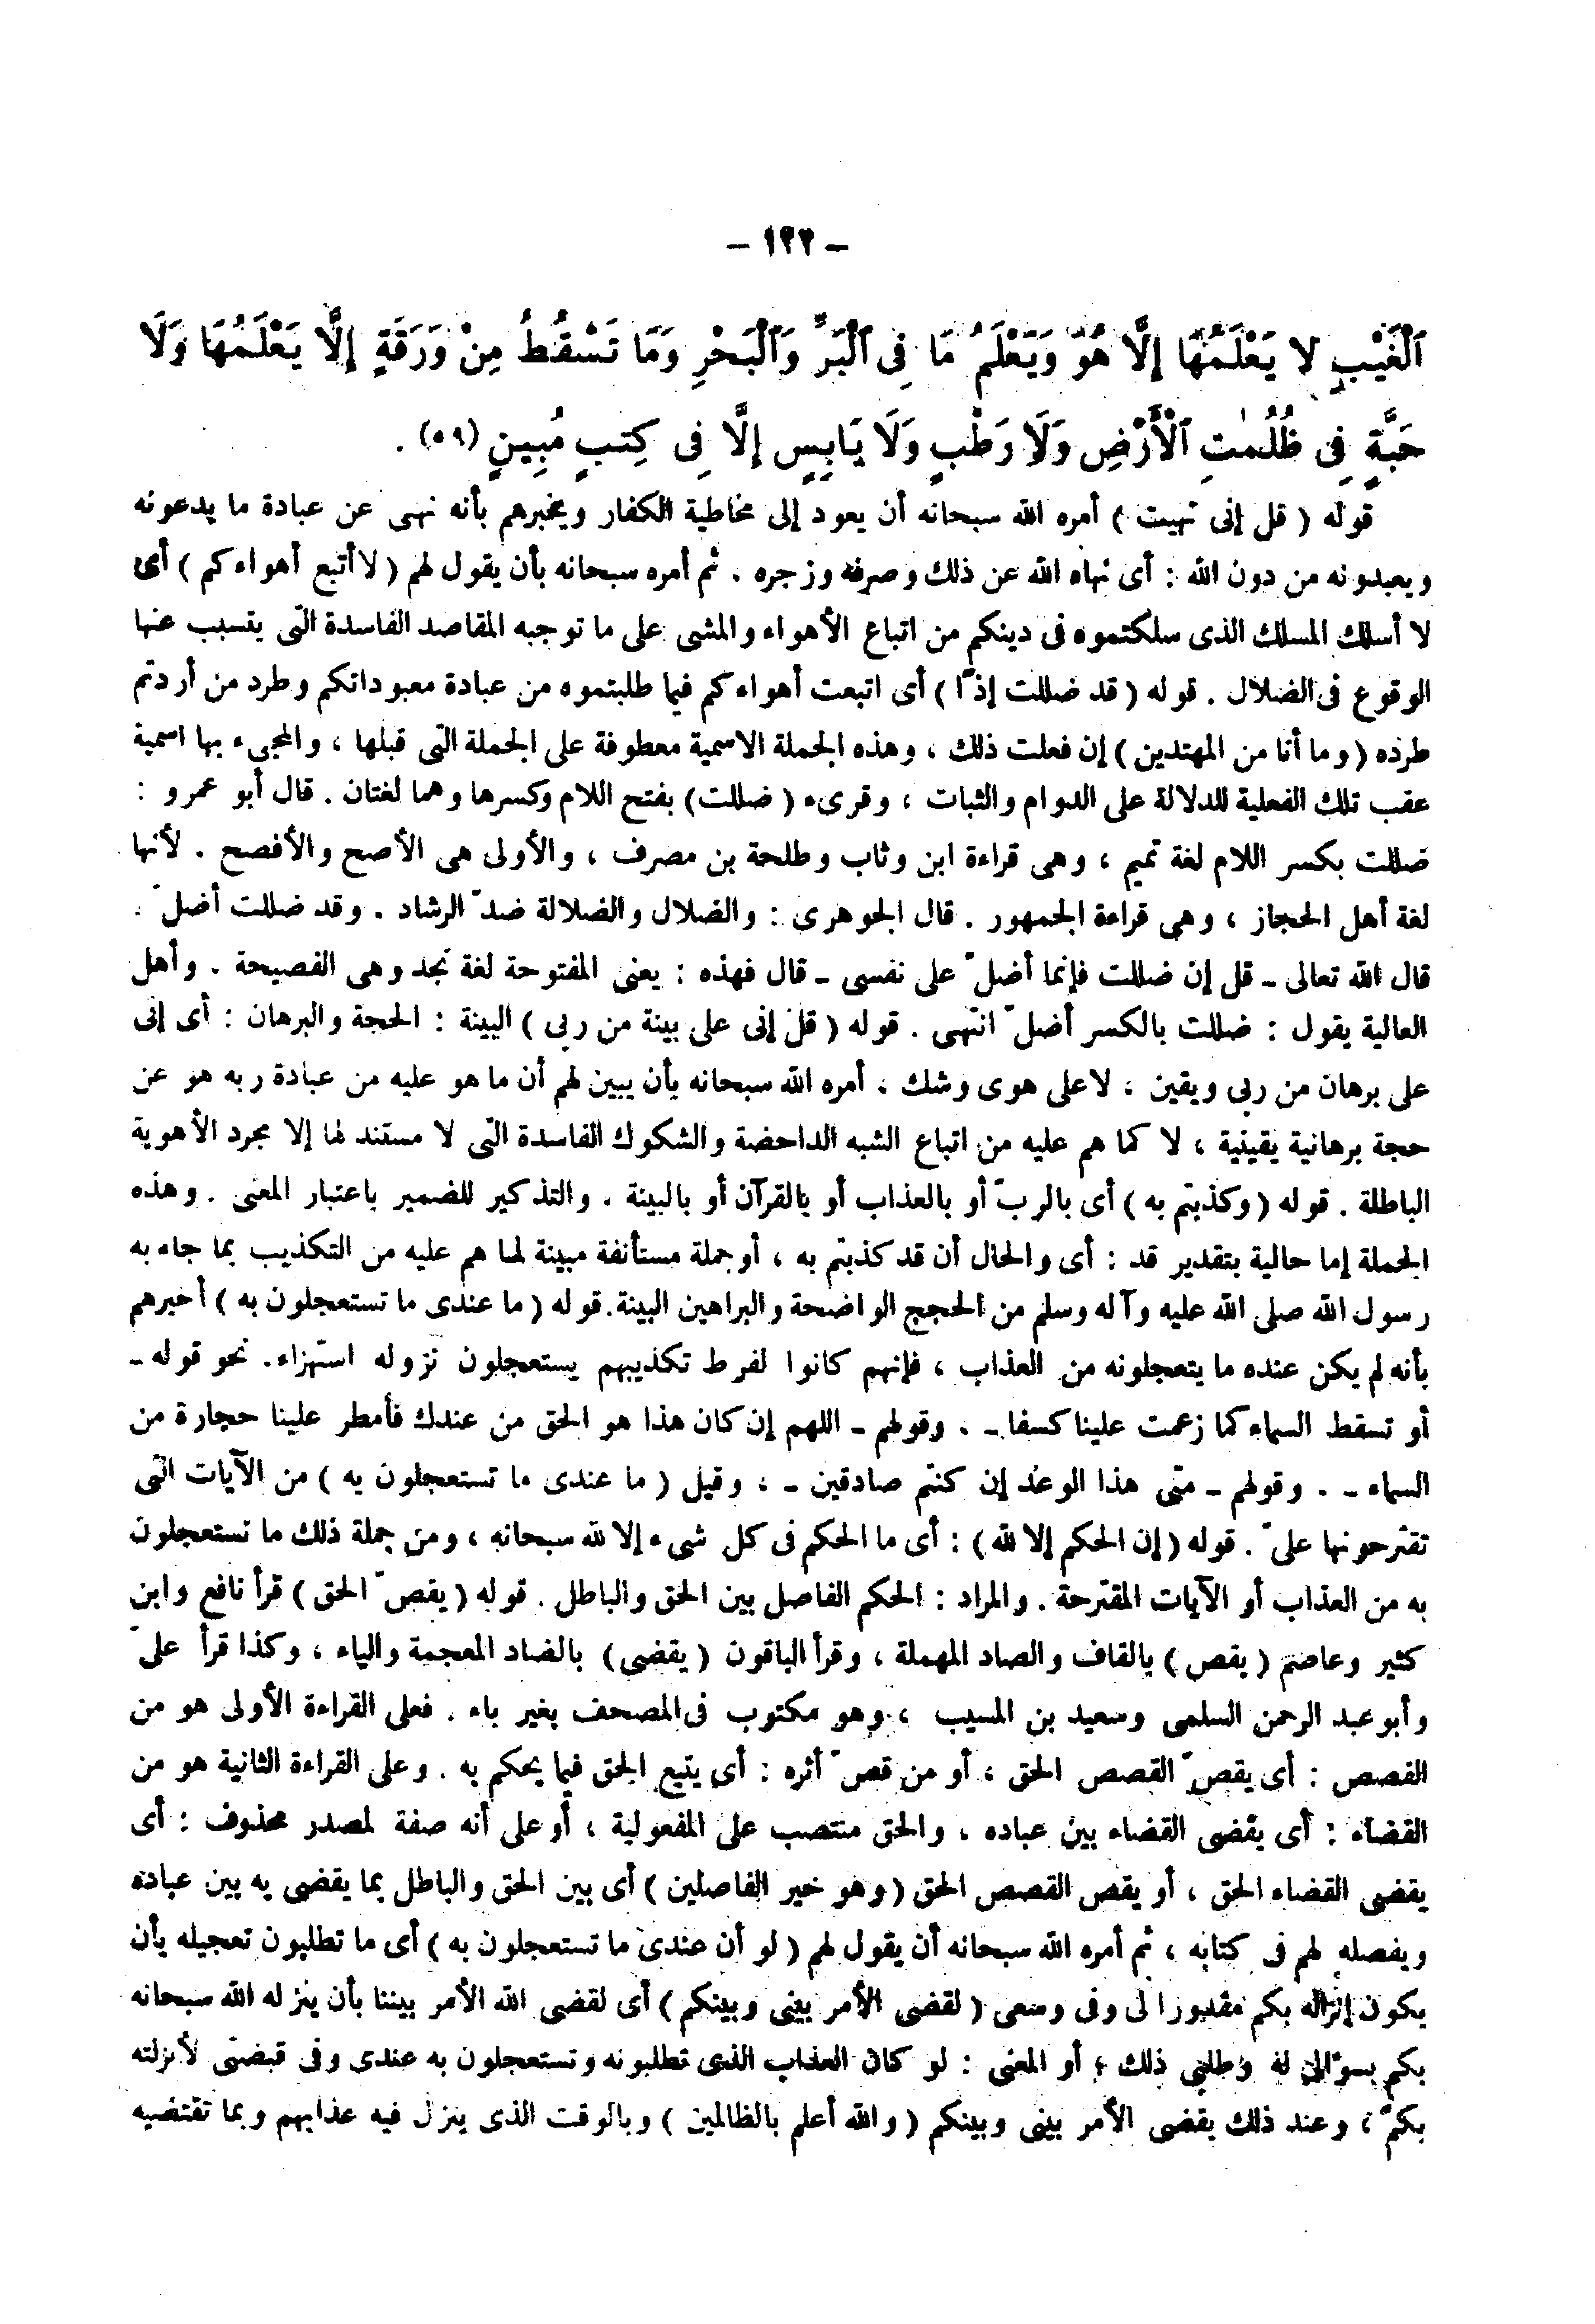 - ١٢٢ -
ٱلْغَيْبِ لا يَعْلَمُهَا إِلَّا هُوَ وَيَعْلَمُ مَا فِى ٱلْبَرِّ وَٱلْبَحْرِ وَمَا تَسْقُطُ مِنْ وَرَقَةٍ إِلَّا يَعْلَمُهَا وَلَا
حَبَّةٍ فِى ظُلُمٰتِ ٱلْأَرْضِ وَلَا رَطْبٍ وَلَا يَابِسٍ إِلَّا فِى كِتٰبٍ مُبِينٍ (٥٩) .
قوله ( قل إنى نهيت ) أمره الله سبحانه أن يعود إلى مخاطبة الكفار ويخبرهم بأنه نهى عن عبادة ما يدعونه
ويعبدونه من دون الله : أى نهاه الله عن ذلك وصرفه وزجره . ثم أمره سبحانه بأن يقول لهم ( لا أتبع أهواءكم ) أى
لا أسلك المسلك الذى سلكتموه فى دينكم من اتباع الأهواء والمشى على ما توجبه المقاصد الفاسدة التى يتسبب عنها
الوقوع فى الضلال . قوله ( قد ضللت إذًا ) أى اتبعت أهواءكم فيما طلبتموه من عبادة معبوداتكم وطرد من أردتم
طرده ( وما أنا من المهتدين ) إن فعلت ذلك ، وهذه الجملة الاسمية معطوفة على الجملة التى قبلها ، والمجىء بها اسمية
عقب تلك الفعلية للدلالة على الدوام والثبات ، وقرىء ( ضللت ) بفتح اللام وكسرها وهما لغتان . قال أبو عمرو :
ضللت بكسر اللام لغة تميم ، وهى قراءة ابن وثاب وطلحة بن مصرف ، والأولى هى الأصح والأفصح . لأنها
لغة أهل الحجاز ، وهى قراءة الجمهور . قال الجوهرى : والضلال والضلالة ضدّ الرشاد . وقد ضللت أضلّ .
قال الله تعالى - قل إن ضللت فإنما أضلّ على نفسى - قال فهذه : يعنى المفتوحة لغة نجد وهى الفصيحة . وأهل
العالية يقول : ضللت بالكسر أضلّ انتهى . قوله ( قل إنى على بينة من ربى ) البينة : الحجة والبرهان : أى إنى
على برهان من ربى ويقين ، لا على هوى وشك . أمره الله سبحانه بأن يبين لهم أن ما هو عليه من عبادة ربه هو عن
حجة برهانية يقينية ، لا كما هم عليه من اتباع الشبه الداحضة والشكوك الفاسدة التى لا مستند لها إلا مجرد الأهوية
الباطلة . قوله ( وكذبتم به ) أى بالربّ أو بالعذاب أو بالقرآن أو بالبينة . والتذكير للضمير باعتبار المعنى . وهذه
الجملة إما حالية بتقدير قد : أى والحال أن قد كذبتم به ، أو جملة مستأنفة مبينة لما هم عليه من التكذيب بما جاء به
رسول الله صلى الله عليه وآله وسلم من الحجج الواضحة والبراهين البينة . قوله ( ما عندى ما تستعجلون به ) أخبرهم
بأنه لم يكن عنده ما يتعجلونه من العذاب ، فإنهم كانوا لفرط تكذيبهم يستعجلون نزوله استهزاء . نحو قوله -
أو تسقط السماء كما زعمت علينا كسفا - . وقولهم - اللهم إن كان هذا هو الحق من عندك فأمطر علينا حجارة من
السماء - . وقولهم - متى هذا الوعد إن كنتم صادقين - ، وقيل ( ما عندى ما تستعجلون به ) من الآيات التى
تقترحونها علىّ . قوله ( إن الحكم إلا لله ) : أى ما الحكم فى كل شىء إلا لله سبحانه ، ومن جملة ذلك ما تستعجلون
به من العذاب أو الآيات المقترحة . والمراد : الحكم الفاصل بين الحق والباطل . قوله ( يقصّ الحق ) قرأ نافع وابن
كثير وعاصم ( يقص ) بالقاف والصاد المهملة ، وقرأ الباقون ( يقضى ) بالضاد المعجمة والياء ، وكذا قرأ علىّ
وأبو عبد الرحمن السلمى وسعيد بن المسيب ، وهو مكتوب فى المصحف بغير ياء . فعلى القراءة الأولى هو من
القصص : أى يقصّ القصص الحق ، أو من قصّ أثره : أى يتبع الحق فيما يحكم به . وعلى القراءة الثانية هو من
القضاء : أى يقضى القضاء بين عباده ، والحق منتصب على المفعولية ، أو على أنه صفة لمصدر محذوف : أى
يقضى القضاء الحق ، أو يقص القصص الحق ( وهو خير الفاصلين ) أى بين الحق والباطل بما يقضى به بين عباده
ويفصله لهم فى كتابه ، ثم أمره الله سبحانه أن يقول لهم ( لو أن عندى ما تستعجلون به ) أى ما تطلبون تعجيله بأن
يكون إنزاله بكم مقدورا لى وفى وسعى ( لقضى الأمر بينى وبينكم ) أى لقضى الله الأمر بيننا بأن ينزله الله سبحانه
بكم بسؤالى له وطلبى ذلك ، أو المعنى : لو كان العذاب الذى تطلبونه وتستعجلون به عندى وفى قبضتى لأنزلته
بكم ، وعند ذلك يقضى الأمر بينى وبينكم ( والله أعلم بالظالمين ) وبالوقت الذى ينزل فيه عذابهم وبما تقتضيه